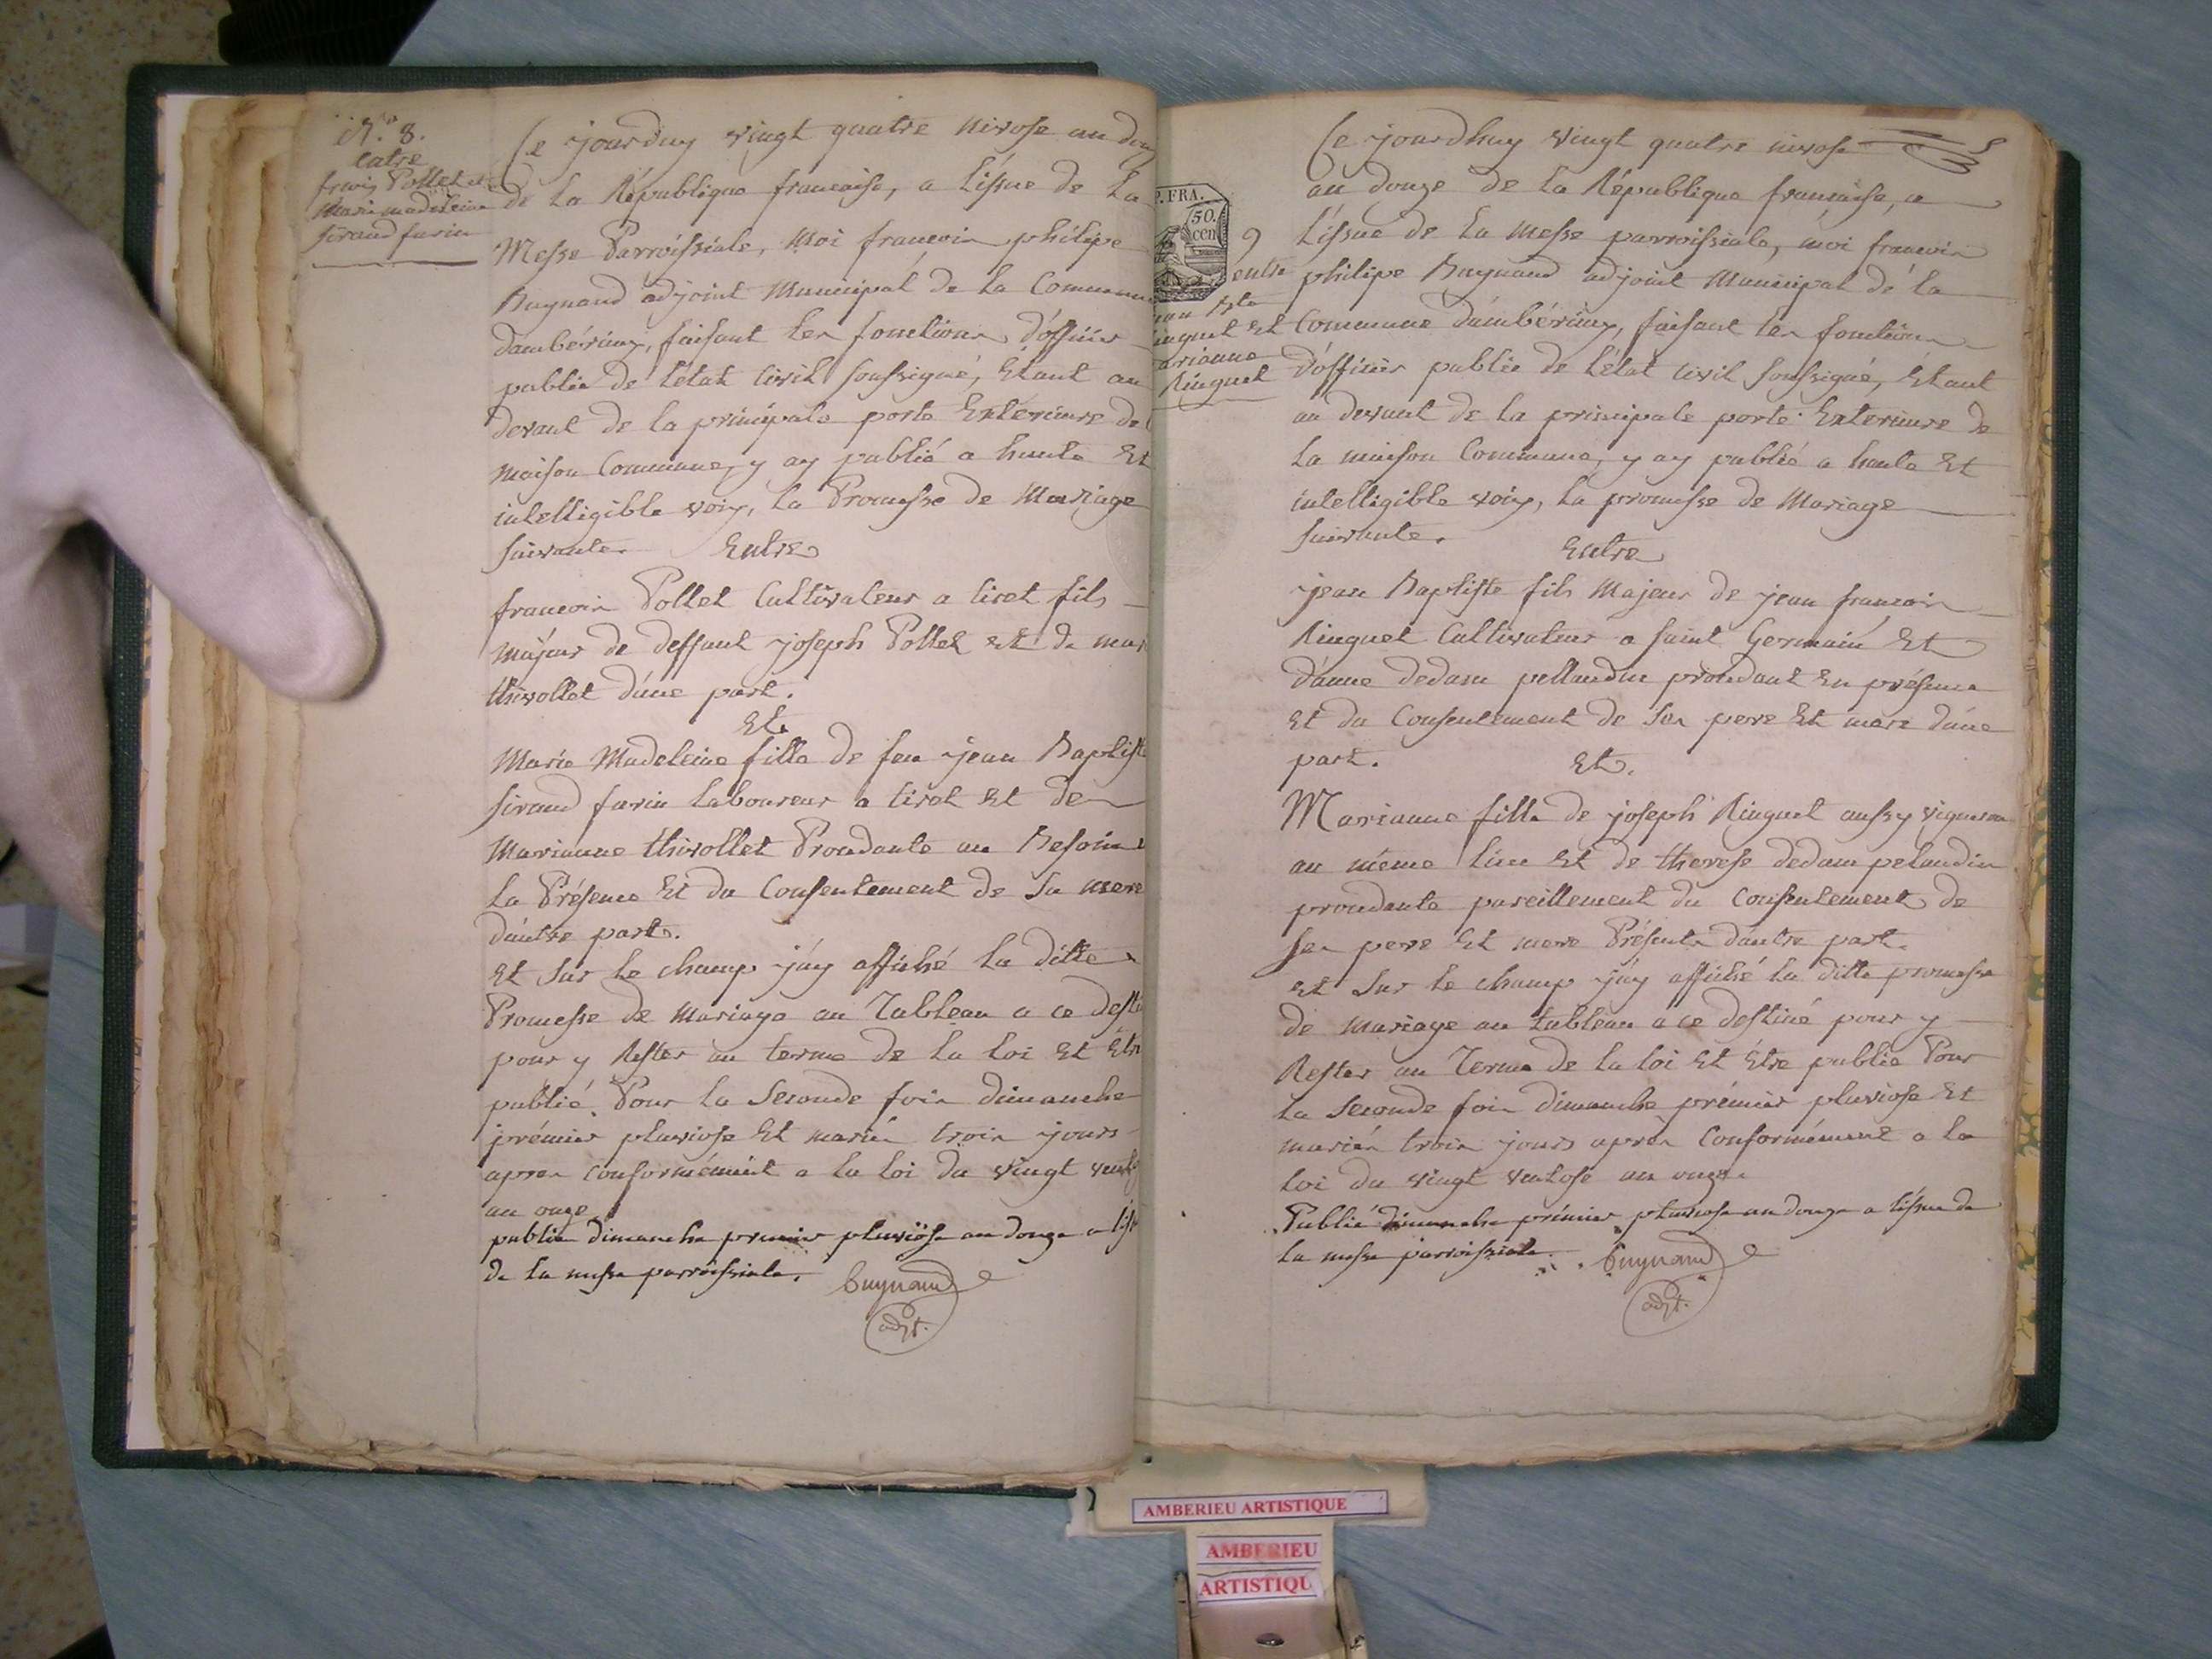 N.o 8.
Entre
françois Pollet et
Marie madeleine
sirand farin
Ce jourduy vingt quatre nivose an douze
de la République francaise, a L'issue de La
Messe Parroissiale, Moi françois philipe
Buynand adjoint Municipal de La Commune
dambérieux, faisant les fonctions d'officier
public de l'état civil soussigné, Etant au
devant de la principale porte Exterieure de
maison Commune, y ay publié a haute Et
intelligible voix, la Promesse de Mariage
suivante. Entre
francois Pollet Cultivateur a tiret fils
majeur de deffunt joseph Pollet et de marie
thivollet d'une part.
Et
Marie Madeleine fille de feu jean Baptiste
sirand farin Laboureur a tiret Et de
Marianne thivollet Procedante au Besoin
la Présence Et du Consentement de Sa mere
d'autre part.
Et sur le champ j'ay affiché La ditte
Promesse de Mariage au Tableau a ce desti
pour y Rester au terme de la Loi Et Etre
publié Pour la Seconde fois dimanche
prémier pluviose Et mariés trois jours
apres conformément a la Loi du vingt ventose
an onze
publié dimanche premier pluviôse an douze a l'issue
de la messe parroissiale. Buynand
adjt.
P. FRA.
50.
cen
9
entre
jean Bte
Ringuet et
Marianne
Ringuet
Ce jourdhuy vingt quatre nivose
an douze de la République francaise, a
L'issue de La Messe parroissiale, moi francois
philipe Buynand adjoint Municipal de la
Commune d'ambérieux, faisant les fonctions
D'officier public de L'état civil Soussigné, Etant
au devant de la principale porte Exterieure de
La maison Commune, y ay publié a haute Et
intelligible voix, La promesse de Mariage
suivante. Entre
jean Baptiste fils Majeur de jean francois
Ringuet Cultivateur a Saint Germain Et
d'anne dedam pellaudin procedant En présence
Et du Consentement de Ses pere Et mere d'une
part. Et.
Marianne fille de joseph Ringuet aussy vigneron
au même lieu Et de therese dedam pelaudin
procedante pareillement du Consentement de
Ses pere Et mere Présents d'autre part.
et Sur le champ j'ay affiché la ditte promesse
de mariage au tableau a ce destiné pour y
Rester au Terme de la loi Et Etre publié Pour
la Seconde fois dimanche prémier pluviose Et
mariés trois jours après Conformément a la
loi du vingt ventose an onze.
Publié dimanche prémier pluviose an douze a l'issue de
la messe parroissiale. Buynand
adjt.
AMBERIEU ARTISTIQUE
AMBERIEU
ARTISTIQU